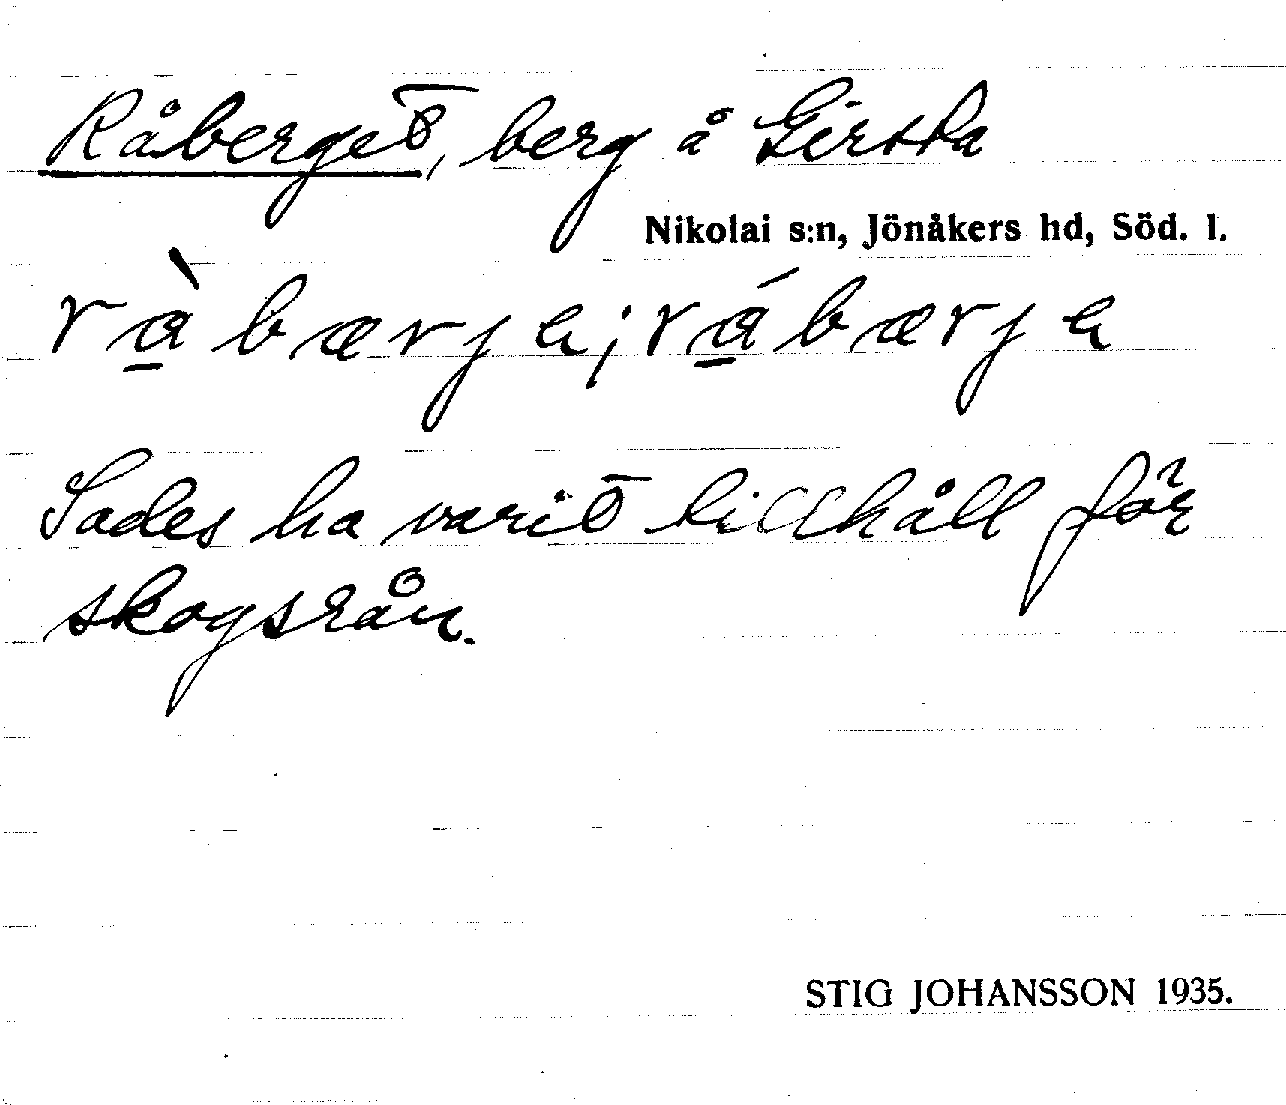 Råberget, berg å Girsta
Nikolai s:n, Jönåkers hd, Söd. l.
rà̱bærja; rá̱bærja
Sades ha varit tillhåll för
skogsrån.
STIG JOHANSSON 1935.